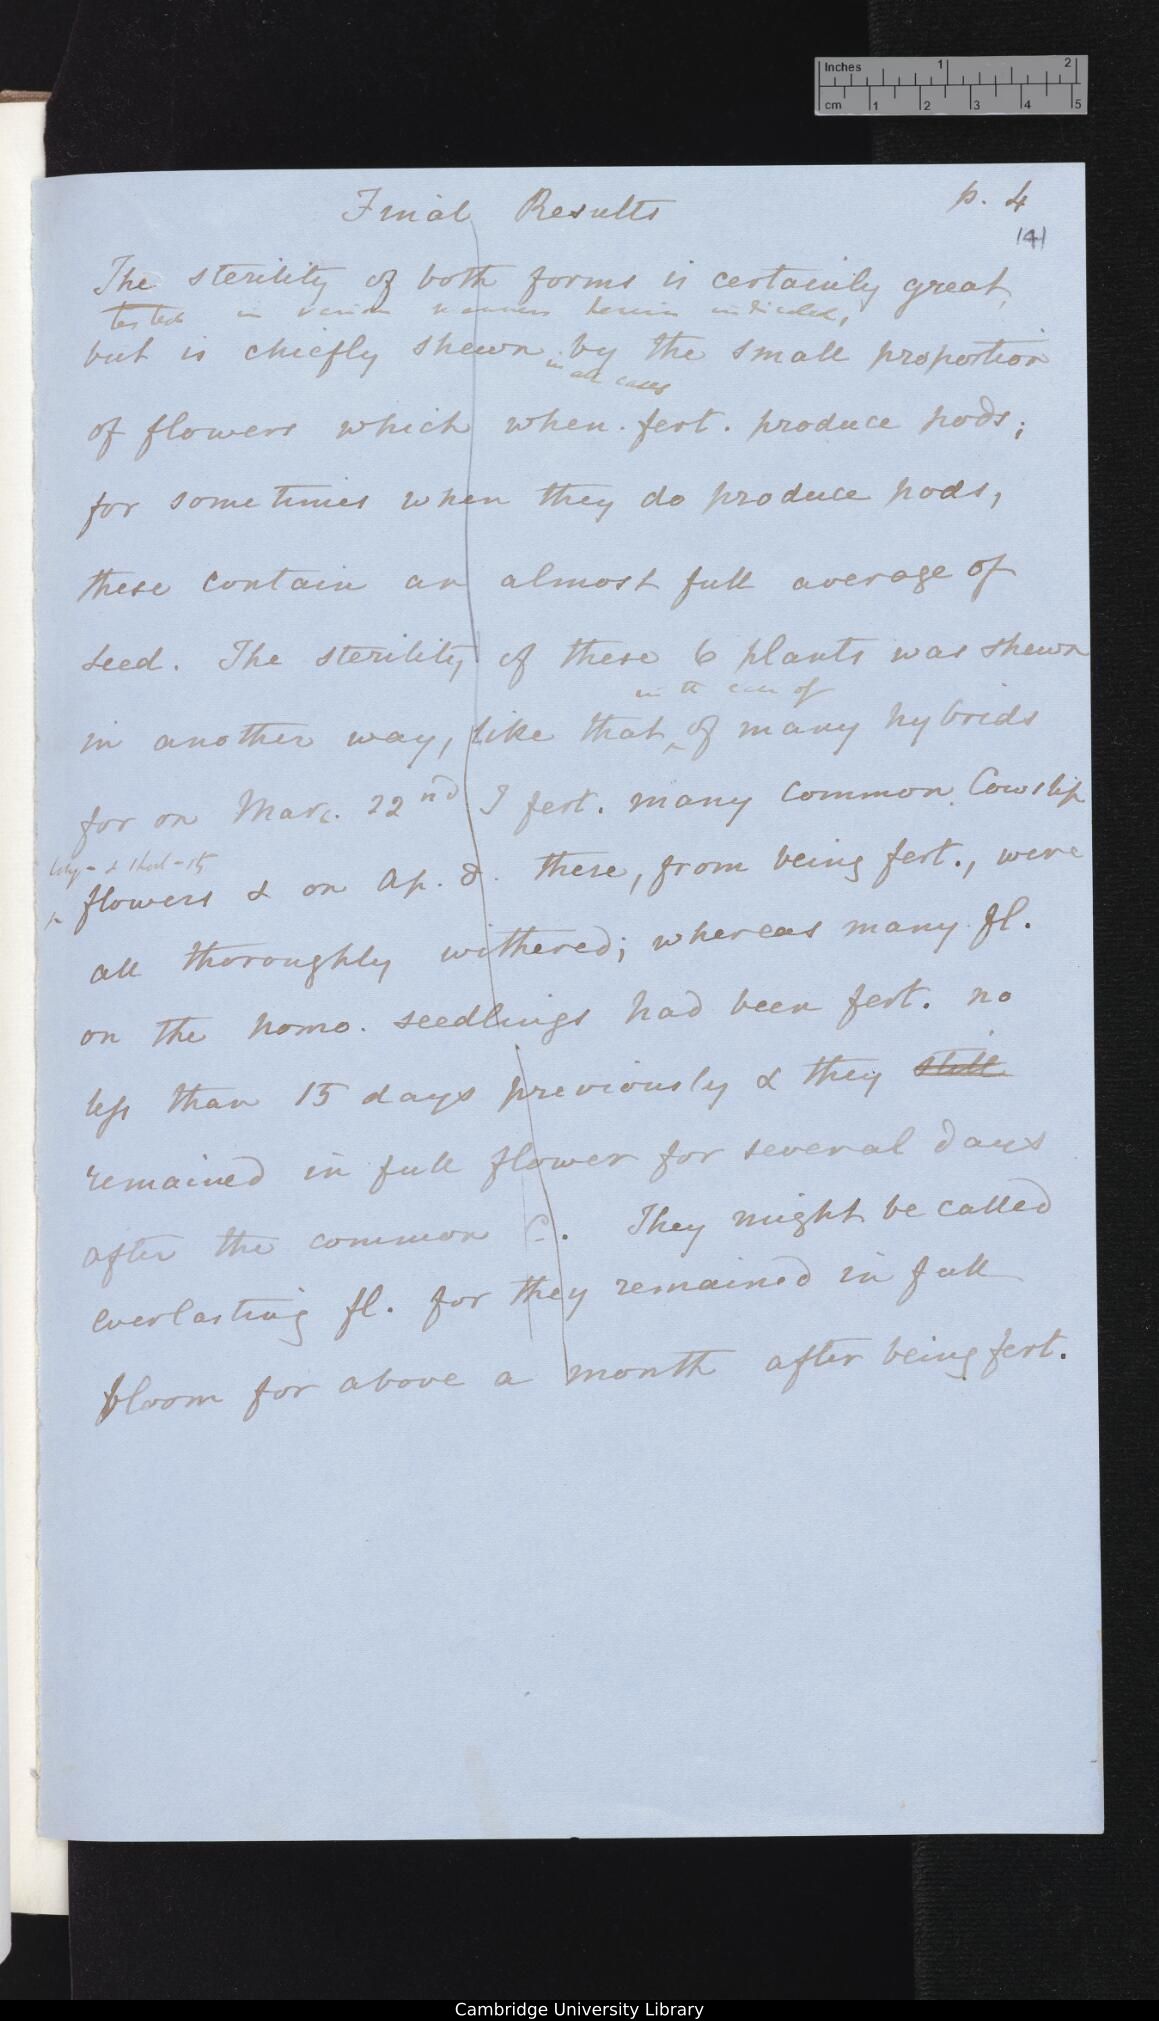 Inches 1 2
cm 1 2 3 4 5
p. 4
Final Results
(4)
The sterility of both forms is certainly great,
tested in various manners herein indicated,
but is chiefly shewn by the small proportion
in all cases
of flowers which when fert. produce pods;
for sometimes when they do produce pods,
these contain an almost full average of
seed. The sterility of these 6 plants was shewn
in the case of
in another way, like that of many hybrids
for on Mar. 22nd I fert. many common Cowslip
long- & short-st
flowers & on Ap. 8. these, from being fert., were
all thoroughly withered; whereas many fl.
on the homo. seedlings had been fert. no
less than 15 days previously & they still
remained in full flower for several days
after the common C. They might be called
everlasting fl. for they remained in full
bloom for above a month after being fert.
Cambridge University Library